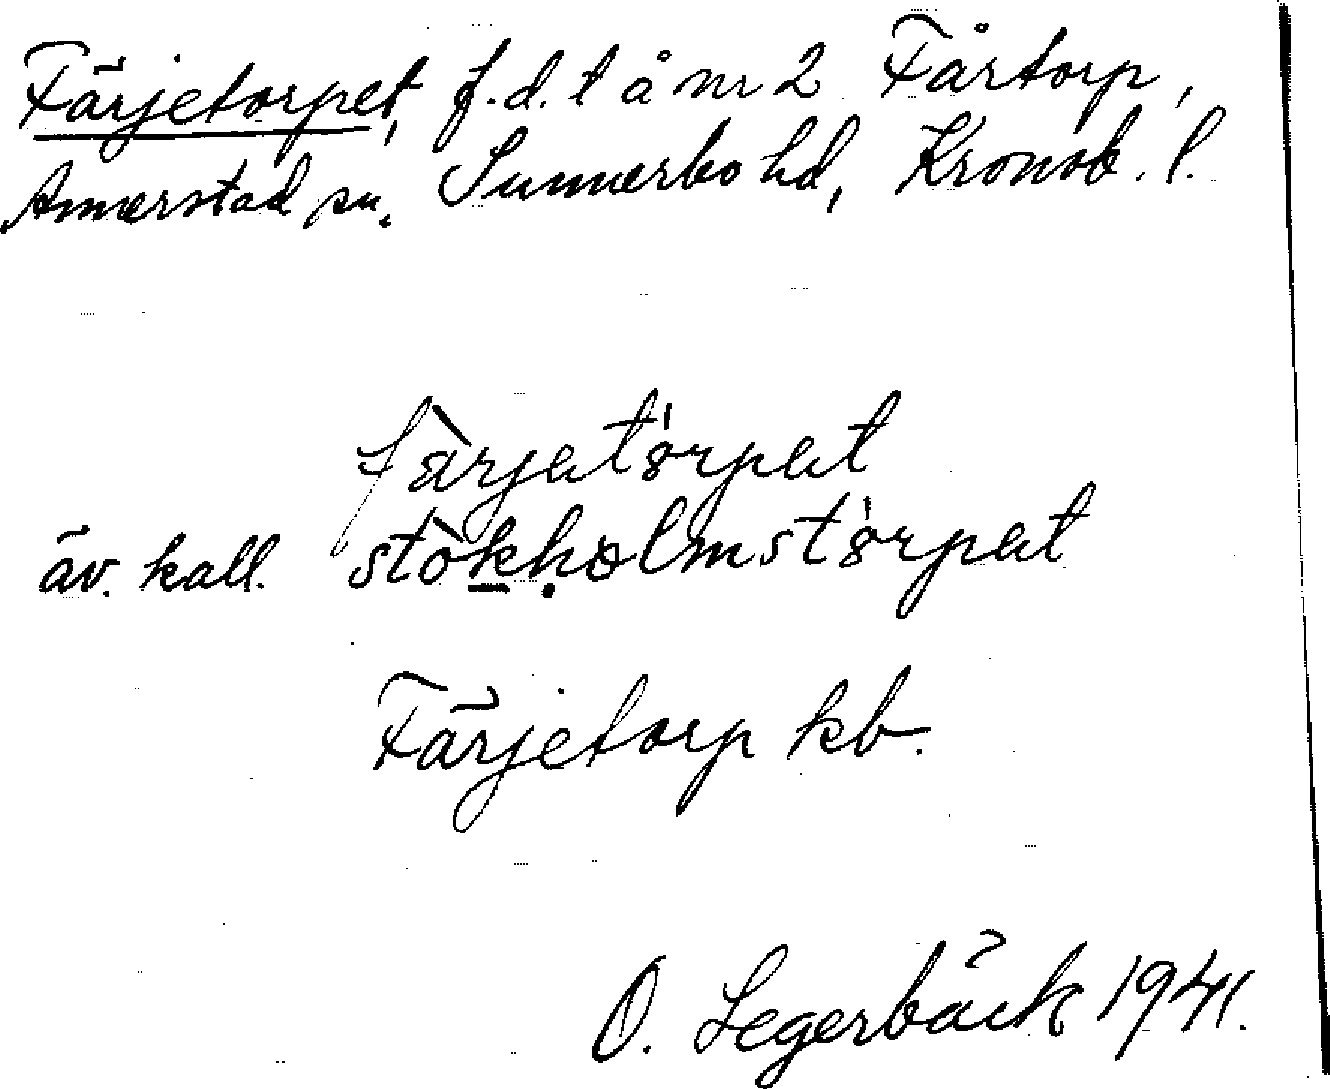 Färjetorpet, f.d. t å nr 2 Fårtorp,
Annerstad sn. Sunnerbo hd, Kronob. l.
färjetorpet
äv. kall. stokholmstorpet
Färjetorp kb.
O. Segerbäck 1941.